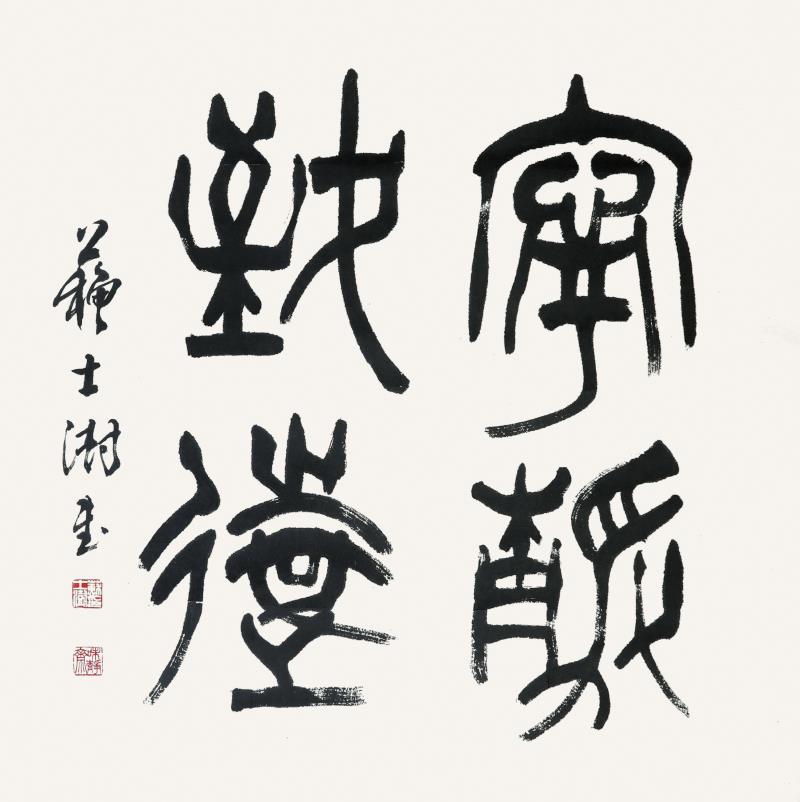 寧靜
致遠
蘇士澍書